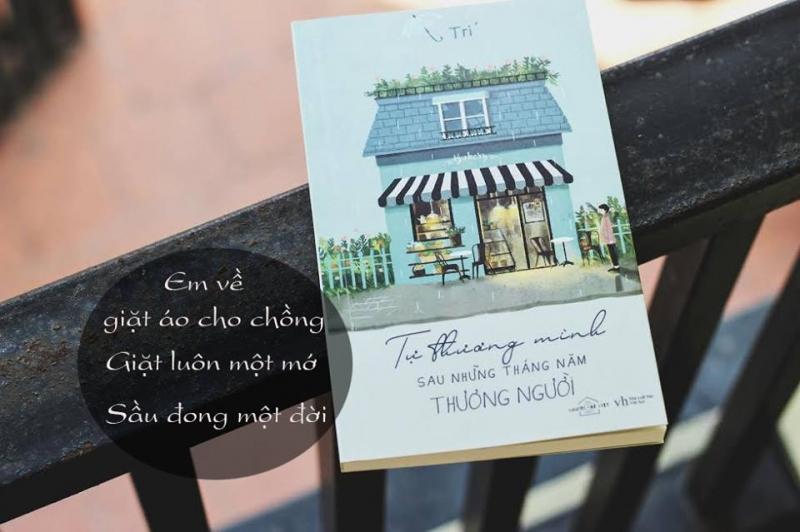 Tri
Bakery
Em về
giặt áo cho chồng
Giặt luôn một mớ
Sầu đong một đời
Tự thương mình
SAU NHỮNG THÁNG NĂM
THƯƠNG NGƯỜI
vh